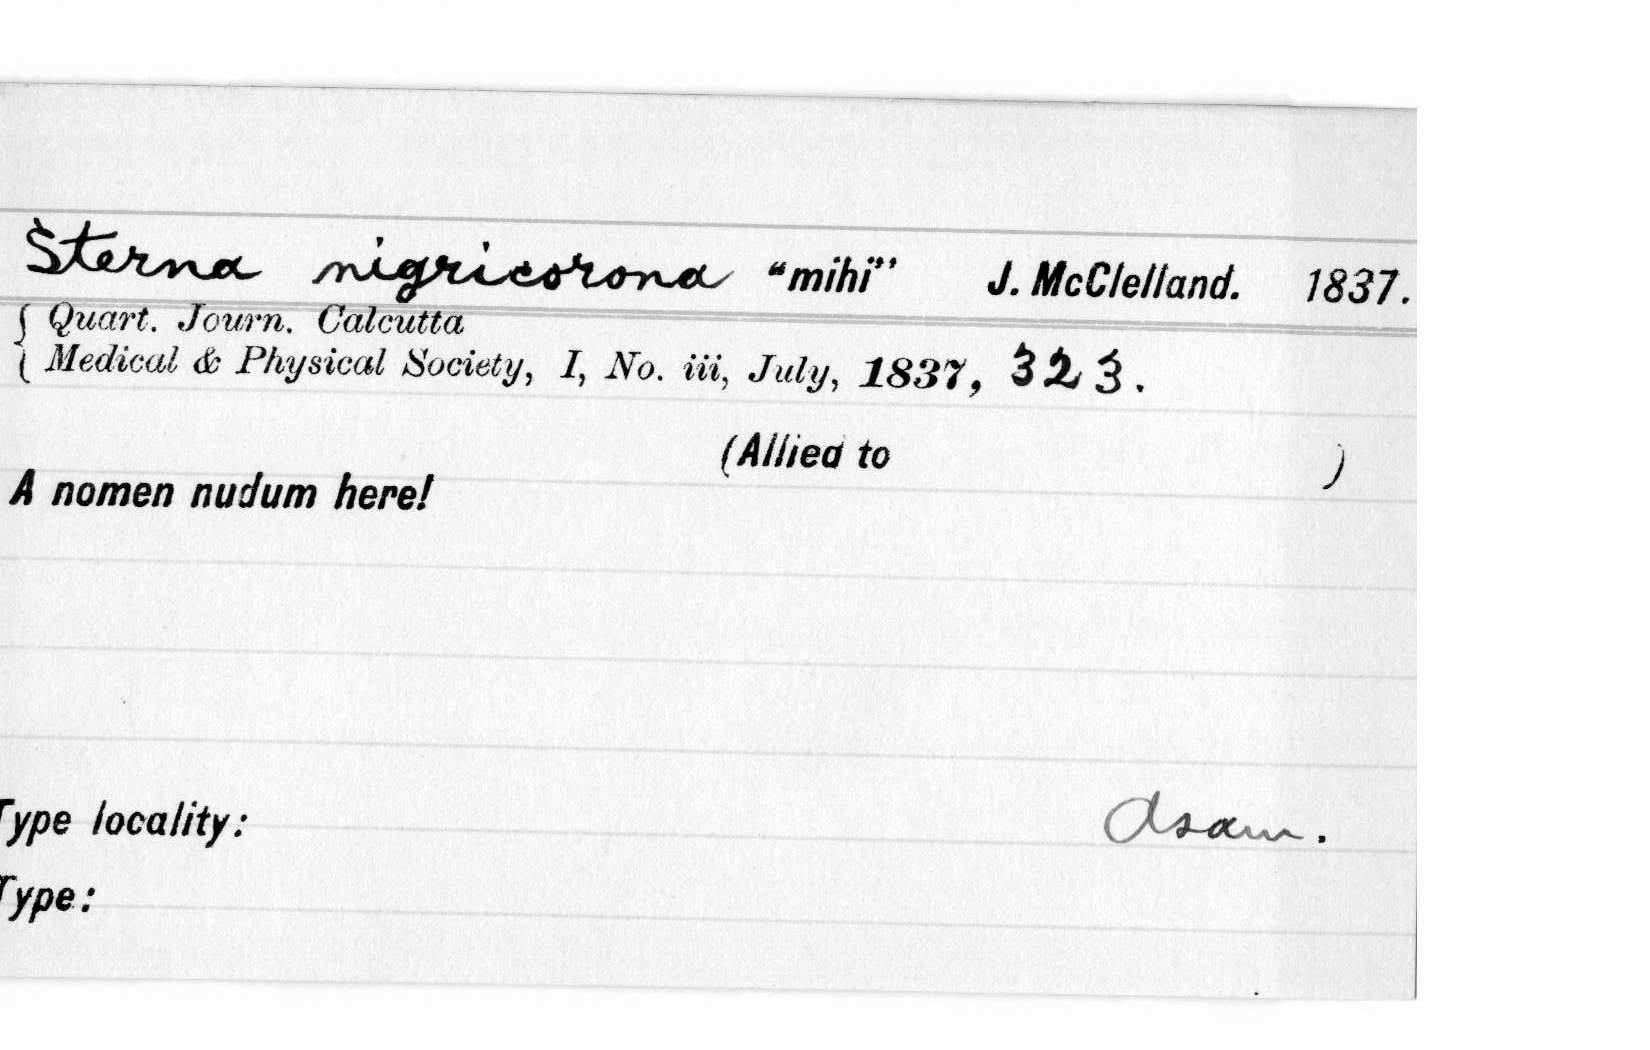 Sterna nigricorona “mihi” J. McClelland. 1837.
{ Quart. Journ. Calcutta
{ Medical & Physical Society, I, No. iii, July, 1837, 323.
(Allied to )
A nomen nudum here!
Type locality: Asam.
Type: